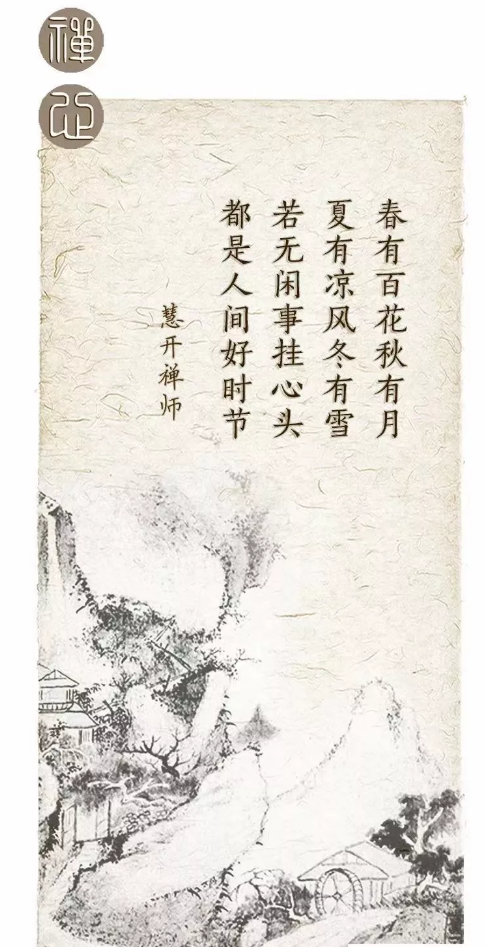 禪
心
春有百花秋有月
夏有凉风冬有雪
若无闲事挂心头
都是人间好时节
慧开禅师